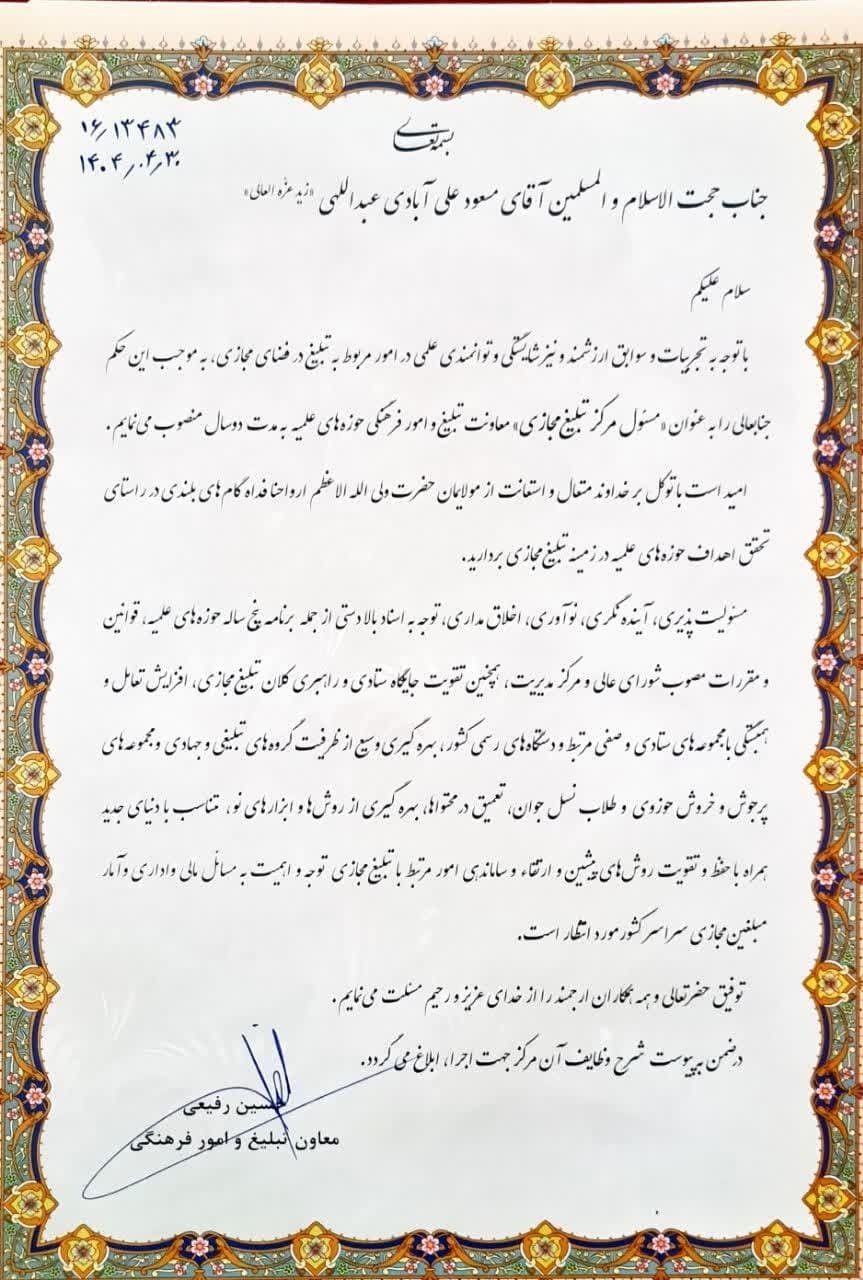 بسمه تعالی
۱۶٫۱۳۴۸۳
۱۴۰۴٫۰۴٫۳۰
جناب حجت الاسلام و المسلمین آقای مسعود علی آبادی عبداللهی «زید عزّه العالی»
سلام علیکم
با توجه به تجربیات و سوابق ارزشمند و نیز شایستگی و توانمندی علمی در امور مربوط به تبلیغ در فضای مجازی، به موجب این حکم
جنابعالی را به عنوان «مسئول مرکز تبلیغ مجازی» معاونت تبلیغ و امور فرهنگی حوزه های علمیه به مدت دو سال منصوب می نمایم.
امید است با توکل بر خداوند متعال و استعانت از مولایمان حضرت ولی الله الاعظم ارواحنا فداه گام های بلندی در راستای
تحقق اهداف حوزه های علمیه در زمینه تبلیغ مجازی بردارید.
مسئولیت پذیری، آینده نگری، نوآوری، اخلاق مداری، توجه به اسناد بالا دستی از جمله برنامه پنج ساله حوزه های علمیه، قوانین
و مقررات مصوب شورای عالی و مرکز مدیریت، همچنین تقویت جایگاه ستادی و راهبری کلان تبلیغ مجازی، افزایش تعامل و
همبستگی با مجموعه های ستادی و صفی مرتبط و دستگاه های رسمی کشور، بهره گیری وسیع از ظرفیت گروه های تبلیغی و جهادی و مجموعه های
پرجوش و خروش حوزوی و طلاب نسل جوان، تعمیق در محتواها، بهره گیری از روش ها و ابزارهای نو، متناسب با دنیای جدید
همراه با حفظ و تقویت روش های پیشین و ارتقاء و ساماندهی امور مرتبط با تبلیغ مجازی توجه و اهمیت به مسائل مالی و اداری و آمار
مبلغین مجازی سراسر کشور مورد انتظار است.
توفیق حضرتعالی و همه همکاران ارجمند را از خدای عزیز و رحیم مسئلت می نمایم.
در ضمن به پیوست شرح وظایف آن مرکز جهت اجرا، ابلاغ می گردد.
حسین رفیعی
معاون تبلیغ و امور فرهنگی